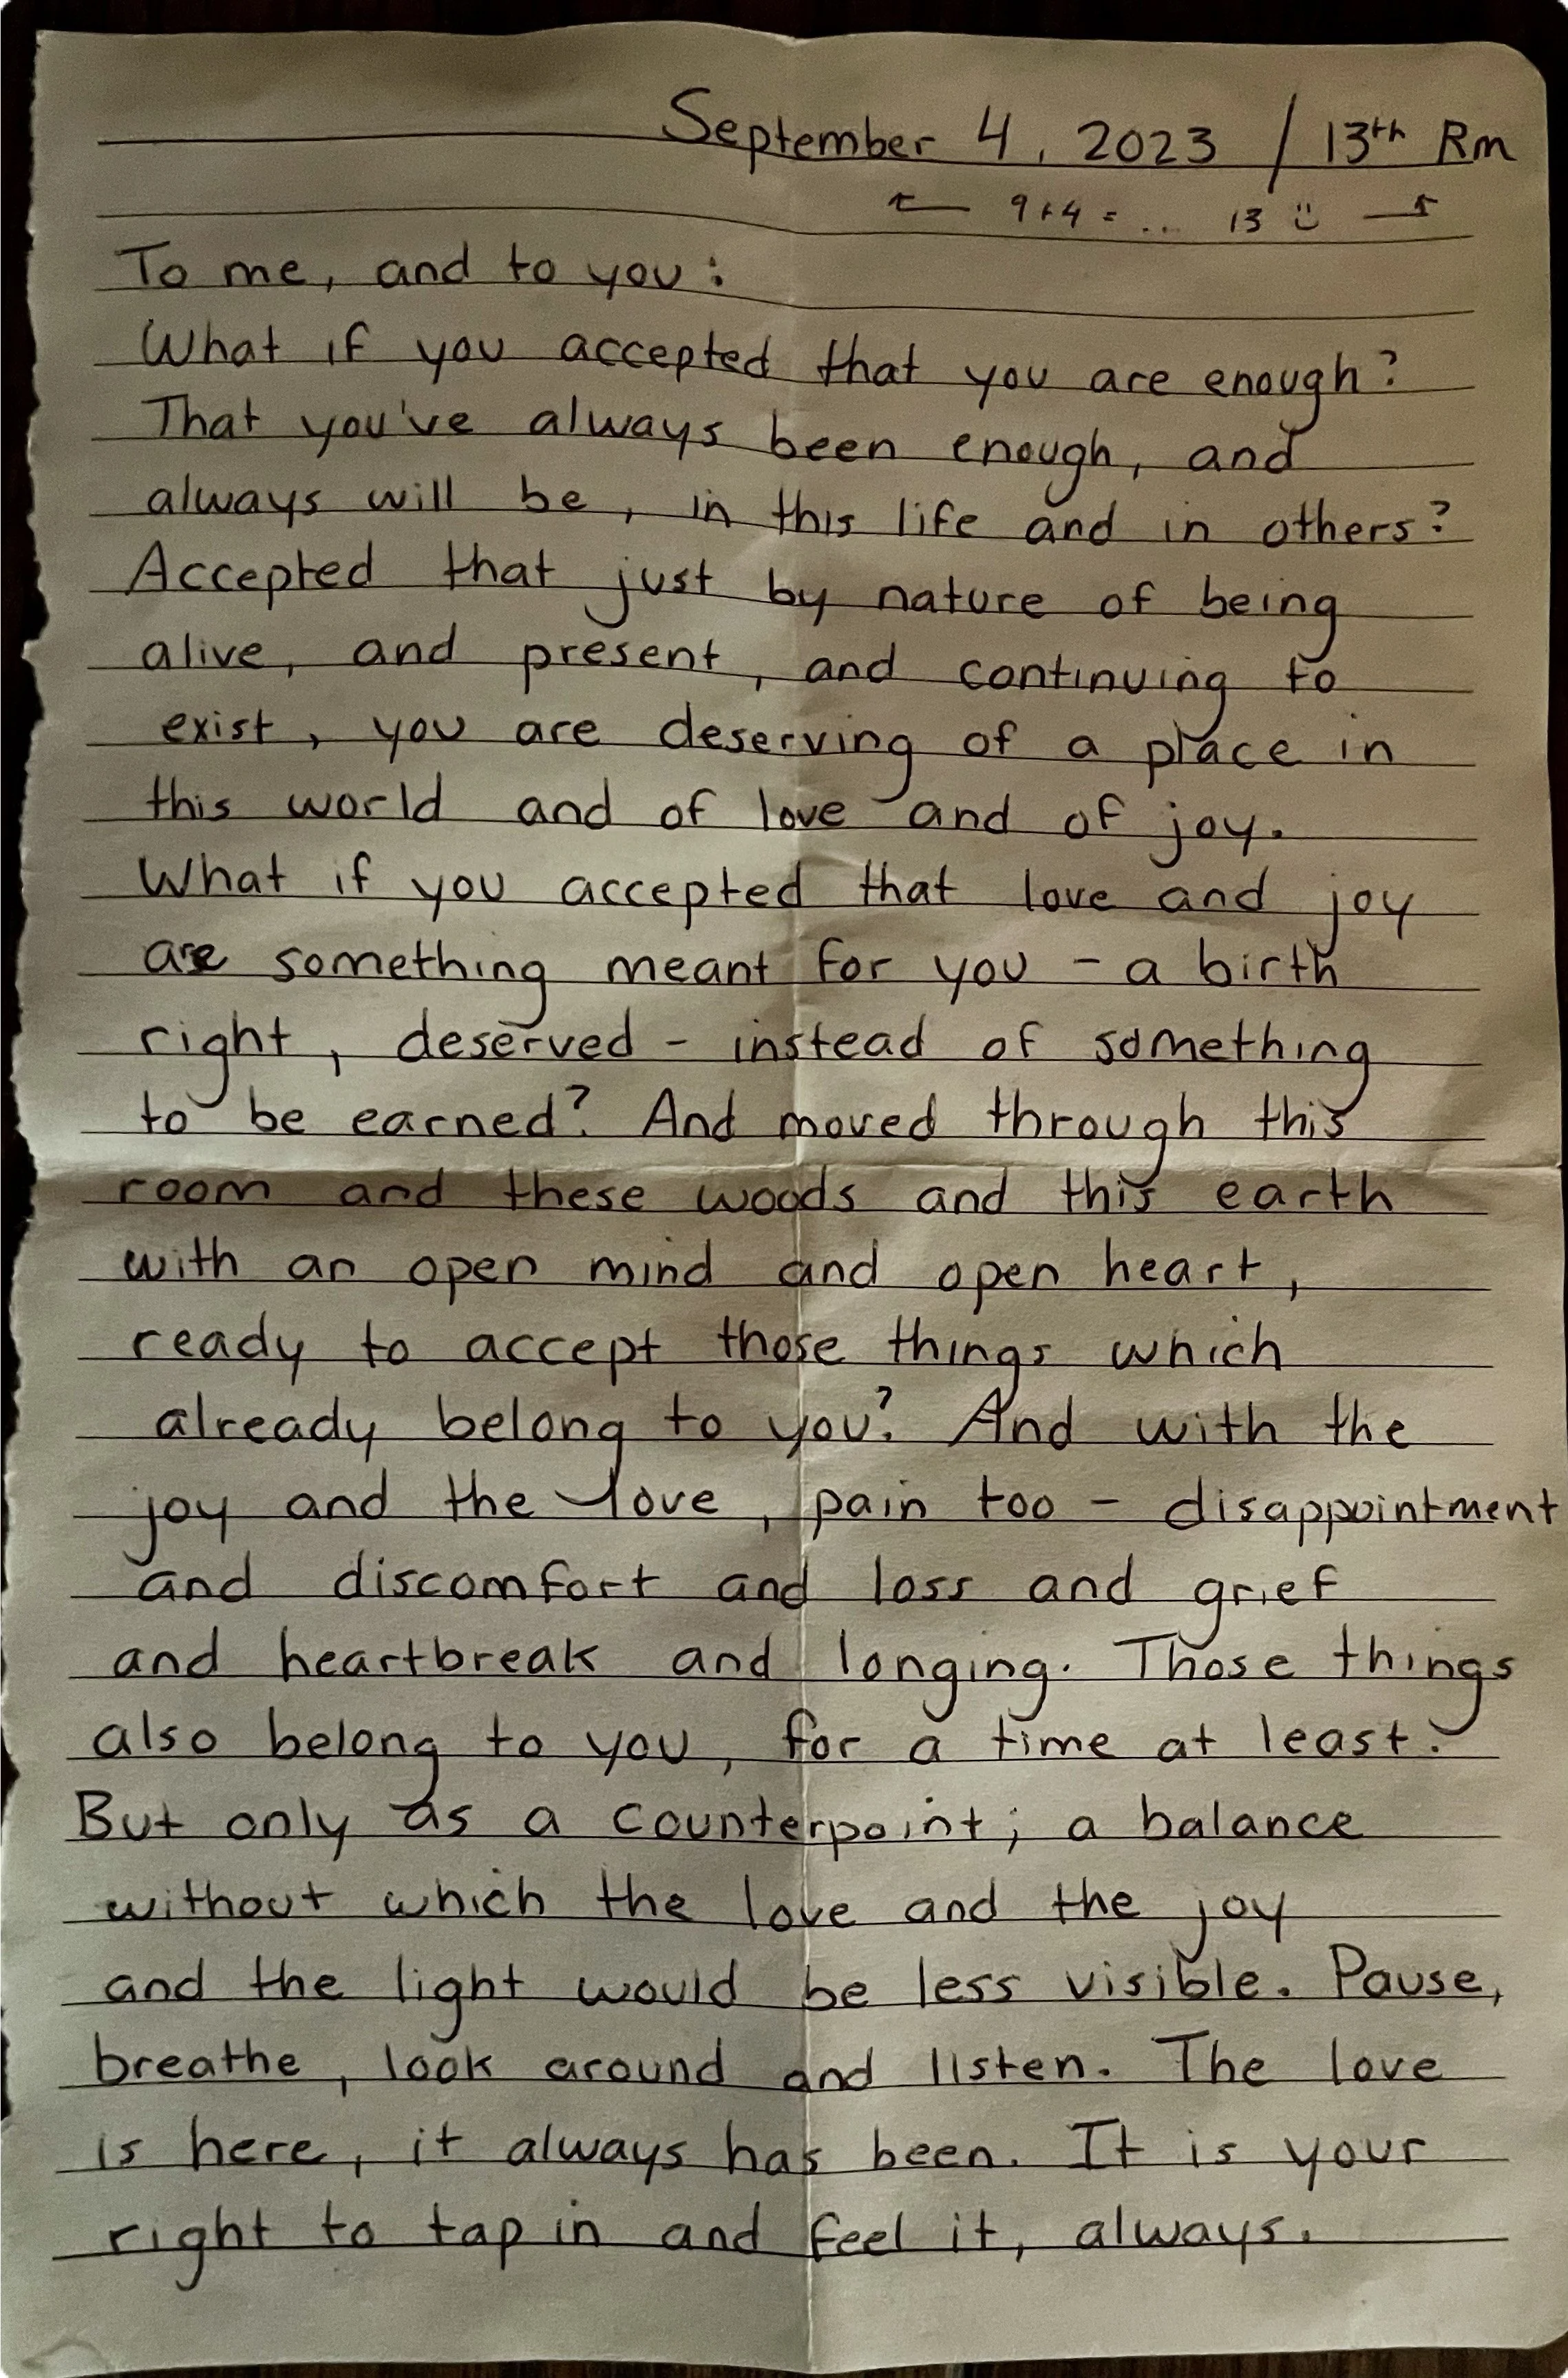 September 4, 2023 / 13th Rm
← 9+4 = ... 13 :) →
To me, and to you:
What if you accepted that you are enough?
That you've always been enough, and
always will be, in this life and in others?
Accepted that just by nature of being
alive, and present, and continuing to
exist, you are deserving of a place in
this world and of love and of joy.
What if you accepted that love and joy
are something meant for you - a birth
right, deserved - instead of something
to be earned? And moved through this
room and these woods and this earth
with an open mind and open heart,
ready to accept those things which
already belong to you? And with the
joy and the love, pain too - disappointment
and discomfort and loss and grief
and heartbreak and longing. Those things
also belong to you, for a time at least.
But only as a counterpoint; a balance
without which the love and the joy
and the light would be less visible. Pause,
breathe, look around and listen. The love
is here, it always has been. It is your
right to tap in and feel it, always.